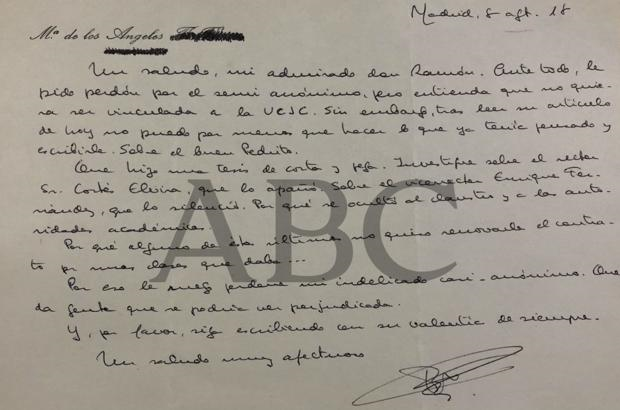 Madrid, 8 agt. 18
Mª de los Angeles
Un saludo, mi admirado don Ramón. Ante todo, le
pido perdón por el semi anónimo, pero entienda que no quie-
ra ser vinculada a la UCJC. Sin embargo, tras leer su artículo
de hoy no puedo por menos que hacer lo que ya tenía pensado y
escribirle. Sobre el buen Pedrito.
Que hizo una tesis de corta y pega. Investigue sobre el rector
Sr. Cortés Elvira, que lo apañó. Sobre el vicerrector Enrique Fer-
nández, que lo silenció. Por qué se ocultó al claustro y a las auto-
ridades académicas.
Por qué alguno de estos últimos no quiso renovarle el contra-
to por unas clases que daba...
Por eso le ruego perdone mi indelicado casi-anónimo. Que
da gente que se podría ver perjudicada.
Y, por favor, siga escribiendo con su valentía de siempre.
Un saludo muy afectuoso
ABC